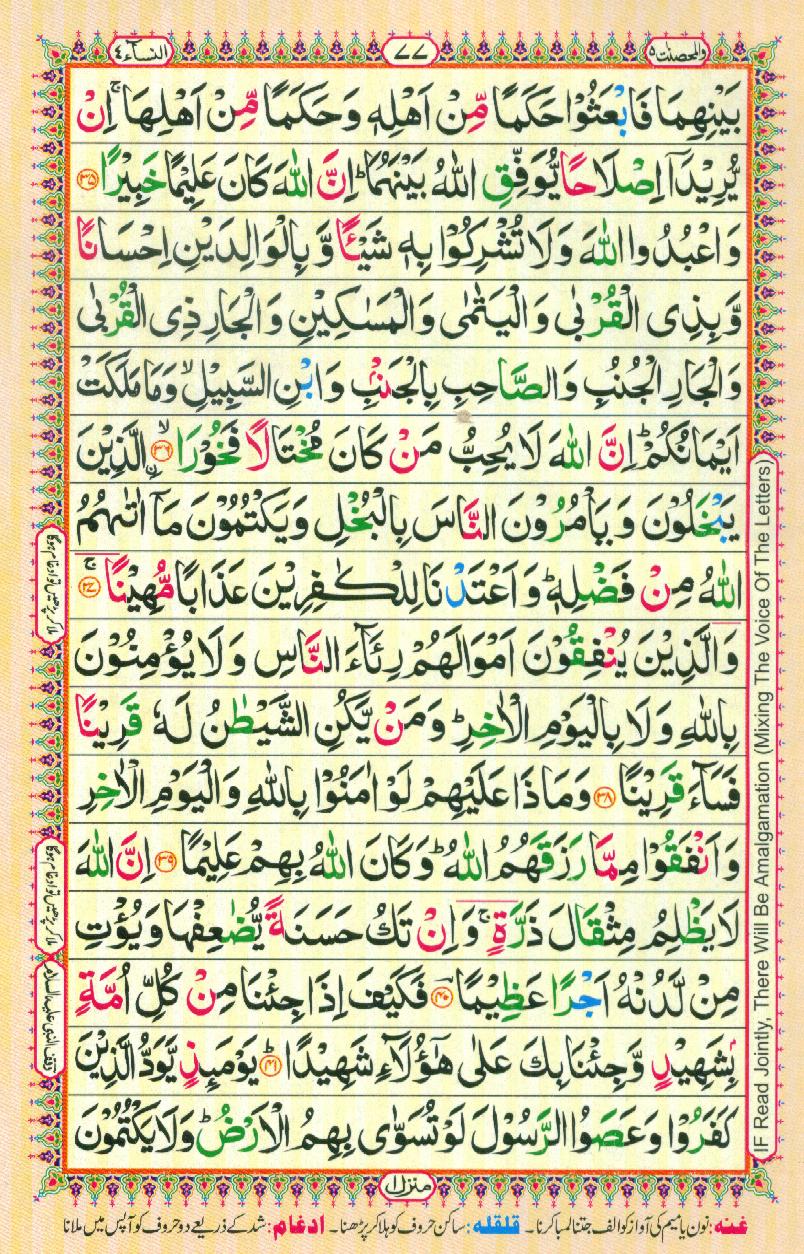 والمحصنت ۵
۷۷
النسآء ۴
بَيْنِهِمَا فَابْعَثُوْا حَكَمًا مِّنْ اَهْلِهٖ وَحَكَمًا مِّنْ اَهْلِهَا ۚ اِنْ
يُّرِيْدَاۤ اِصْلَاحًا يُّوَفِّقِ اللّٰهُ بَيْنَهُمَا ؕ اِنَّ اللّٰهَ كَانَ عَلِيْمًا خَبِيْرًا ﴿۳۵﴾
وَاعْبُدُوا اللّٰهَ وَلَا تُشْرِكُوْا بِهٖ شَيْـًٔا وَّ بِالْوَالِدَيْنِ اِحْسَانًا
وَّبِذِى الْقُرْبٰى وَالْيَتٰمٰى وَالْمَسٰكِيْنِ وَالْجَارِ ذِى الْقُرْبٰى
وَالْجَارِ الْجُنُبِ وَالصَّاحِبِ بِالْجَنْۢبِ وَابْنِ السَّبِيْلِ ۙ وَمَا مَلَكَتْ
اَيْمَانُكُمْ ؕ اِنَّ اللّٰهَ لَا يُحِبُّ مَنْ كَانَ مُخْتَالًا فَخُوْرَا ﴿۳۶﴾ ۙ اۨلَّذِيْنَ
يَبْخَلُوْنَ وَيَاْمُرُوْنَ النَّاسَ بِالْبُخْلِ وَيَكْتُمُوْنَ مَاۤ اٰتٰٮهُمُ
اللّٰهُ مِنْ فَضْلِهٖ ؕ وَاَعْتَدْنَا لِلْكٰفِرِيْنَ عَذَابًا مُّهِيْنًا ﴿۳۷﴾ ۚ
وَالَّذِيْنَ يُنْفِقُوْنَ اَمْوَالَهُمْ رِئَآءَ النَّاسِ وَلَا يُؤْمِنُوْنَ
بِاللّٰهِ وَلَا بِالْيَوْمِ الْاٰخِرِ ؕ وَمَنْ يَّكُنِ الشَّيْطٰنُ لَهٗ قَرِيْنًا
فَسَآءَ قَرِيْنًا ﴿۳۸﴾ وَمَاذَا عَلَيْهِمْ لَوْ اٰمَنُوْا بِاللّٰهِ وَالْيَوْمِ الْاٰخِرِ
وَاَنْفَقُوْا مِمَّا رَزَقَهُمُ اللّٰهُ ؕ وَكَانَ اللّٰهُ بِهِمْ عَلِيْمًا ﴿۳۹﴾ اِنَّ اللّٰهَ
لَا يَظْلِمُ مِثْقَالَ ذَرَّةٍ ۚ وَاِنْ تَكُ حَسَنَةً يُّضٰعِفْهَا وَيُؤْتِ
مِنْ لَّدُنْهُ اَجْرًا عَظِيْمًا ﴿۴۰﴾ فَكَيْفَ اِذَا جِئْنَا مِنْ كُلِّ اُمَّةٍۭ
بِشَهِيْدٍ وَّجِئْنَا بِكَ عَلٰى هٰٓؤُلَآءِ شَهِيْدًا ﴿۴۱﴾ ؕ يَوْمَئِذٍ يَّوَدُّ الَّذِيْنَ
كَفَرُوْا وَعَصَوُا الرَّسُوْلَ لَوْ تُسَوّٰى بِهِمُ الْاَرْضُ ؕ وَلَا يَكْتُمُوْنَ
منزل ۱
IF Read Jointly, There Will Be Amalgamation (Mixing The Voice Of The Letters)
ملا کر پڑھیں تو ادغام ہوگا
ملا کر پڑھیں تو ادغام ہوگا
وقف النبی علیہ السلام
غنہ: نون یا میم کی آواز کو الف جتنا لمبا کرنا۔ قلقلہ: ساکن حروف کو ہلا کر پڑھنا۔ ادغام: شد کے ذریعے دو حروف کو آپس میں ملانا